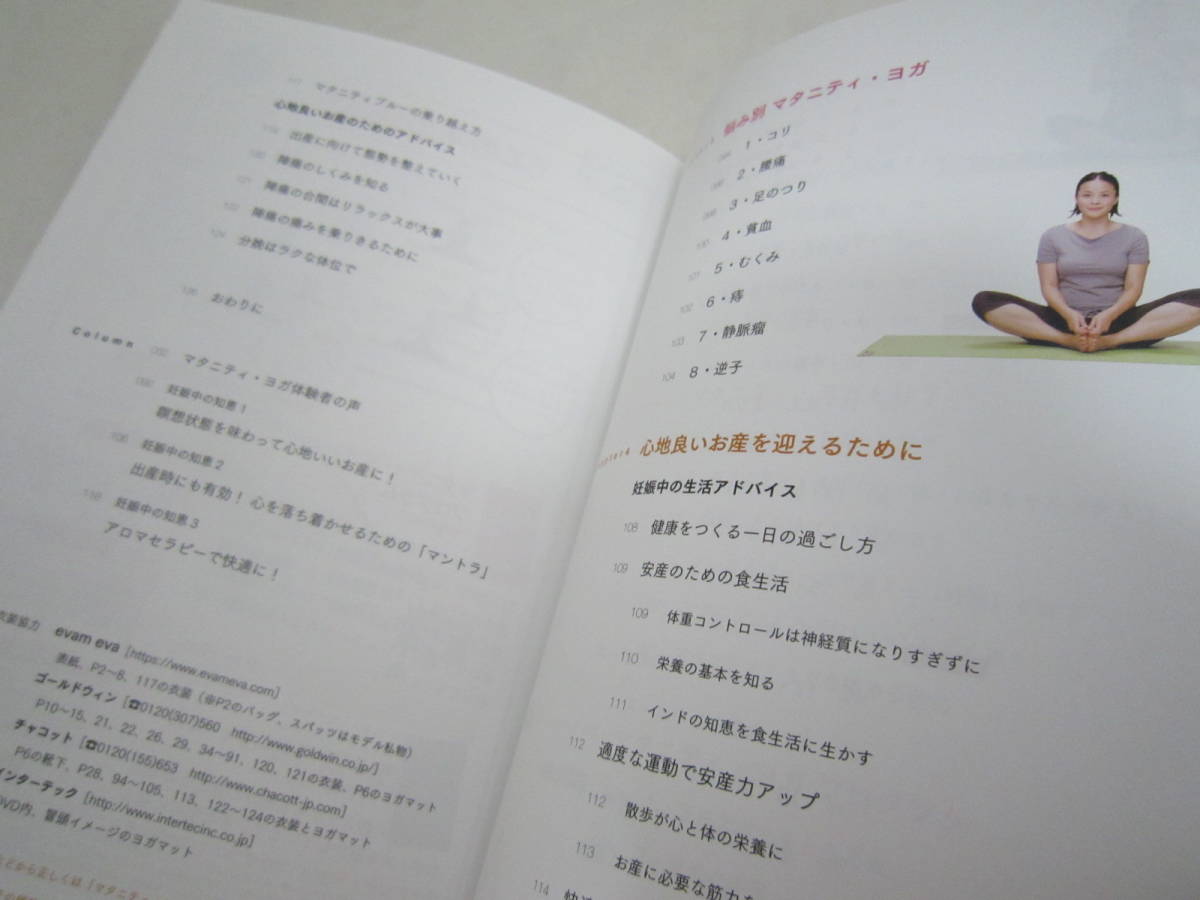 117 マタニティブルーの乗り越え方
心地良いお産のためのアドバイス
出産に向けて態勢を整えていく
120 陣痛のしくみを知る
121 陣痛の合間はリラックスが大事
122 陣痛の痛みを乗りきるために
124 分娩はラクな体位で
126 おわりに
Column
マタニティ・ヨガ体験者の声
妊娠中の知恵1
瞑想状態を味わって心地いいお産に！
106 妊娠中の知恵2
出産時にも有効！ 心を落ち着かせるための「マントラ」
118 妊娠中の知恵3
アロマセラピーで快適に！
衣装協力 evam eva [https://www.evameva.com]
表紙、P2〜8、117の衣装（※P2のバッグ、スパッツはモデル私物）
ゴールドウィン [☎0120(307)560 http://www.goldwin.co.jp/]
P10〜15、21、22、26、29、34〜91、120、121の衣装、P6のヨガマット
チャコット [☎0120(155)653 http://www.chacott-jp.com]
P6の靴下、P28、94〜105、113、122〜124の衣装とヨガマット
インターテック [http://www.intertecinc.co.jp]
DVD内、冒頭イメージのヨガマット
から正しくは「マタニティ
悩み別 マタニティ・ヨガ
1・コリ
2・腰痛
3・足のつり
100 4・貧血
101 5・むくみ
102 6・痔
103 7・静脈瘤
104 8・逆子
心地良いお産を迎えるために
妊娠中の生活アドバイス
108 健康をつくる一日の過ごし方
109 安産のための食生活
109 体重コントロールは神経質になりすぎずに
110 栄養の基本を知る
111 インドの知恵を食生活に生かす
112 適度な運動で安産力アップ
112 散歩が心と体の栄養に
113 お産に必要な筋力を
114 快適